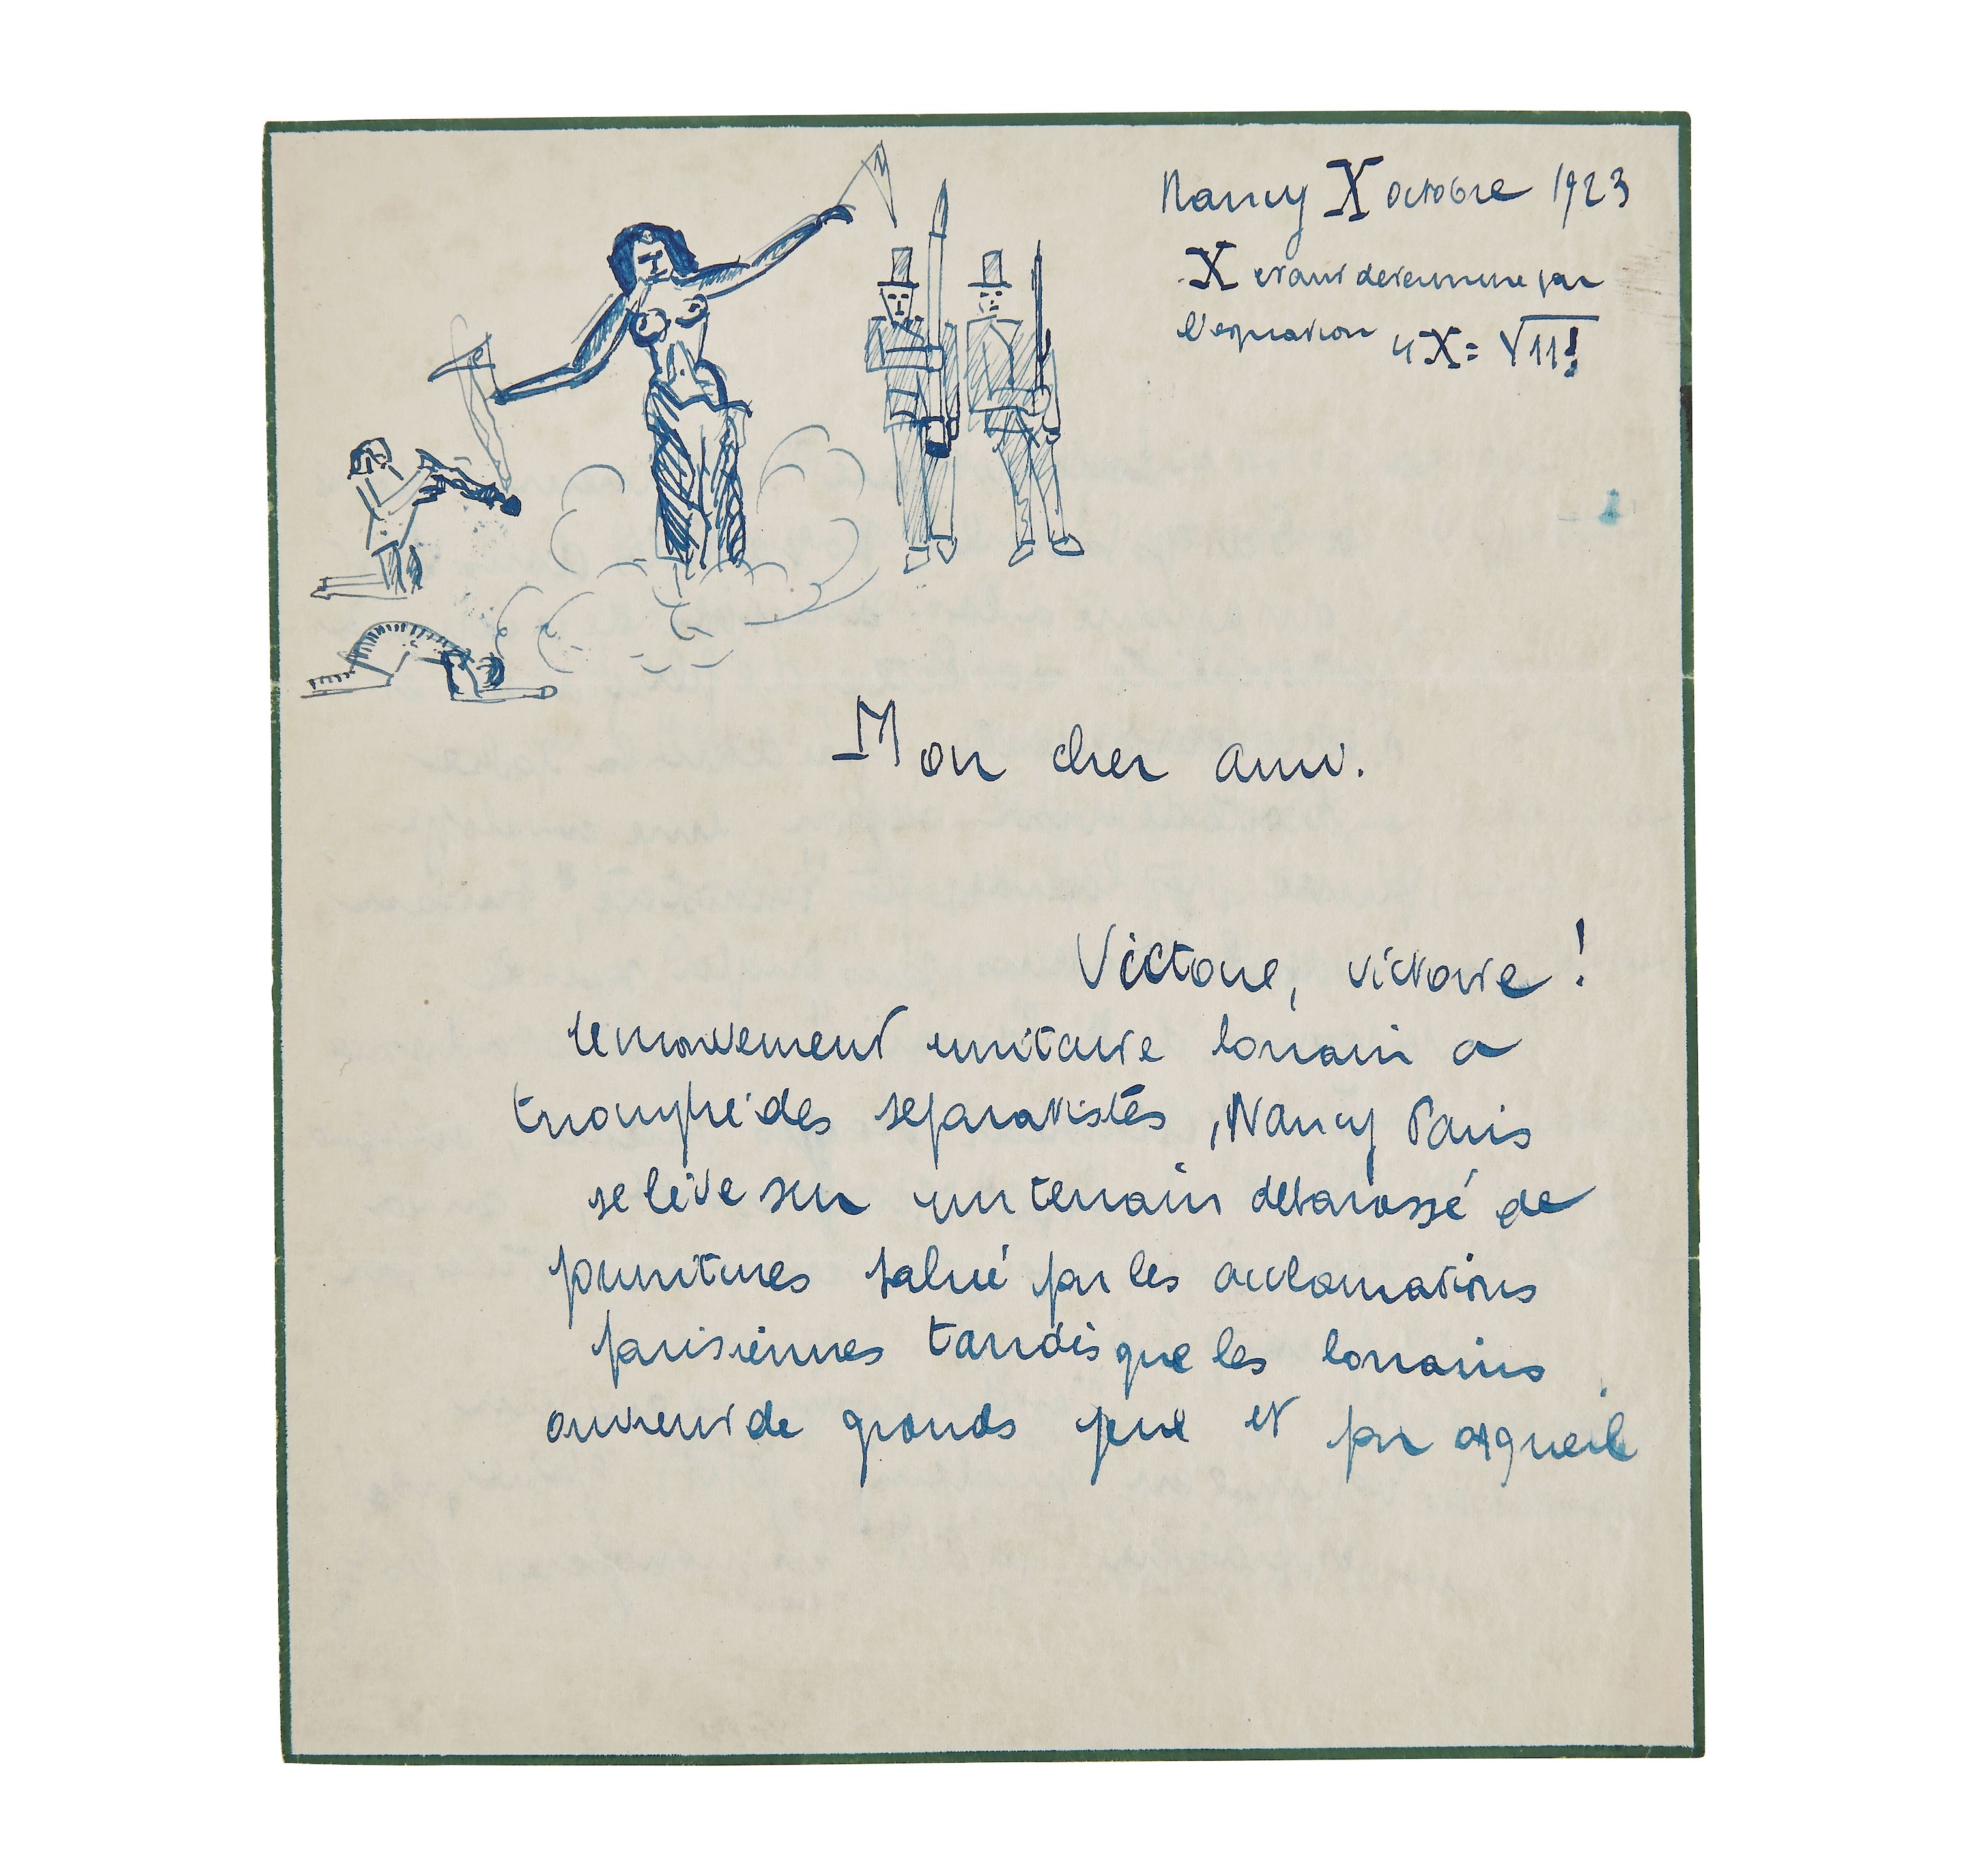 Nancy X octobre 1923
X etant determine par
l'equation 4X = √11!
Mon cher ami.
Victoire, victoire !
le mouvement unitaire lorrain a
triomphé des separatistes, Nancy Paris
se lève sur un terrain débarassé de
punitures salué par les acclamations
parisiennes tandis que les lorrains
ouvrent de grands yeux et par orgueil